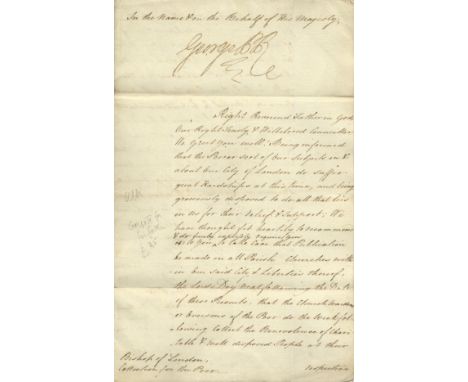 In the Name & on the Behalf of His Majesty,
George P R
Right Reverend Father in God
Our Right Trusty & Wellbeloved Councillor
We Greet you well. Being informed
that the Poorer sort of Our Subjects in &
about Our City of London do suffer
great Hardships at this time, and being
graciously disposed to do all that lies
in us for their Relief & Support; We
have thought fit hereby to recommend
to you, to take Care that Publication
be made in all Parish Churches with
in Our said City & Liberties thereof,
the Lords Day next following the Date
of these Presents, that the Church Wardens
or Overseers of the Poor do the Week fol
lowing collect the Benevolence of Chari
table & well disposed People at their
Bishop of London,
Collection for the Poor.
respective